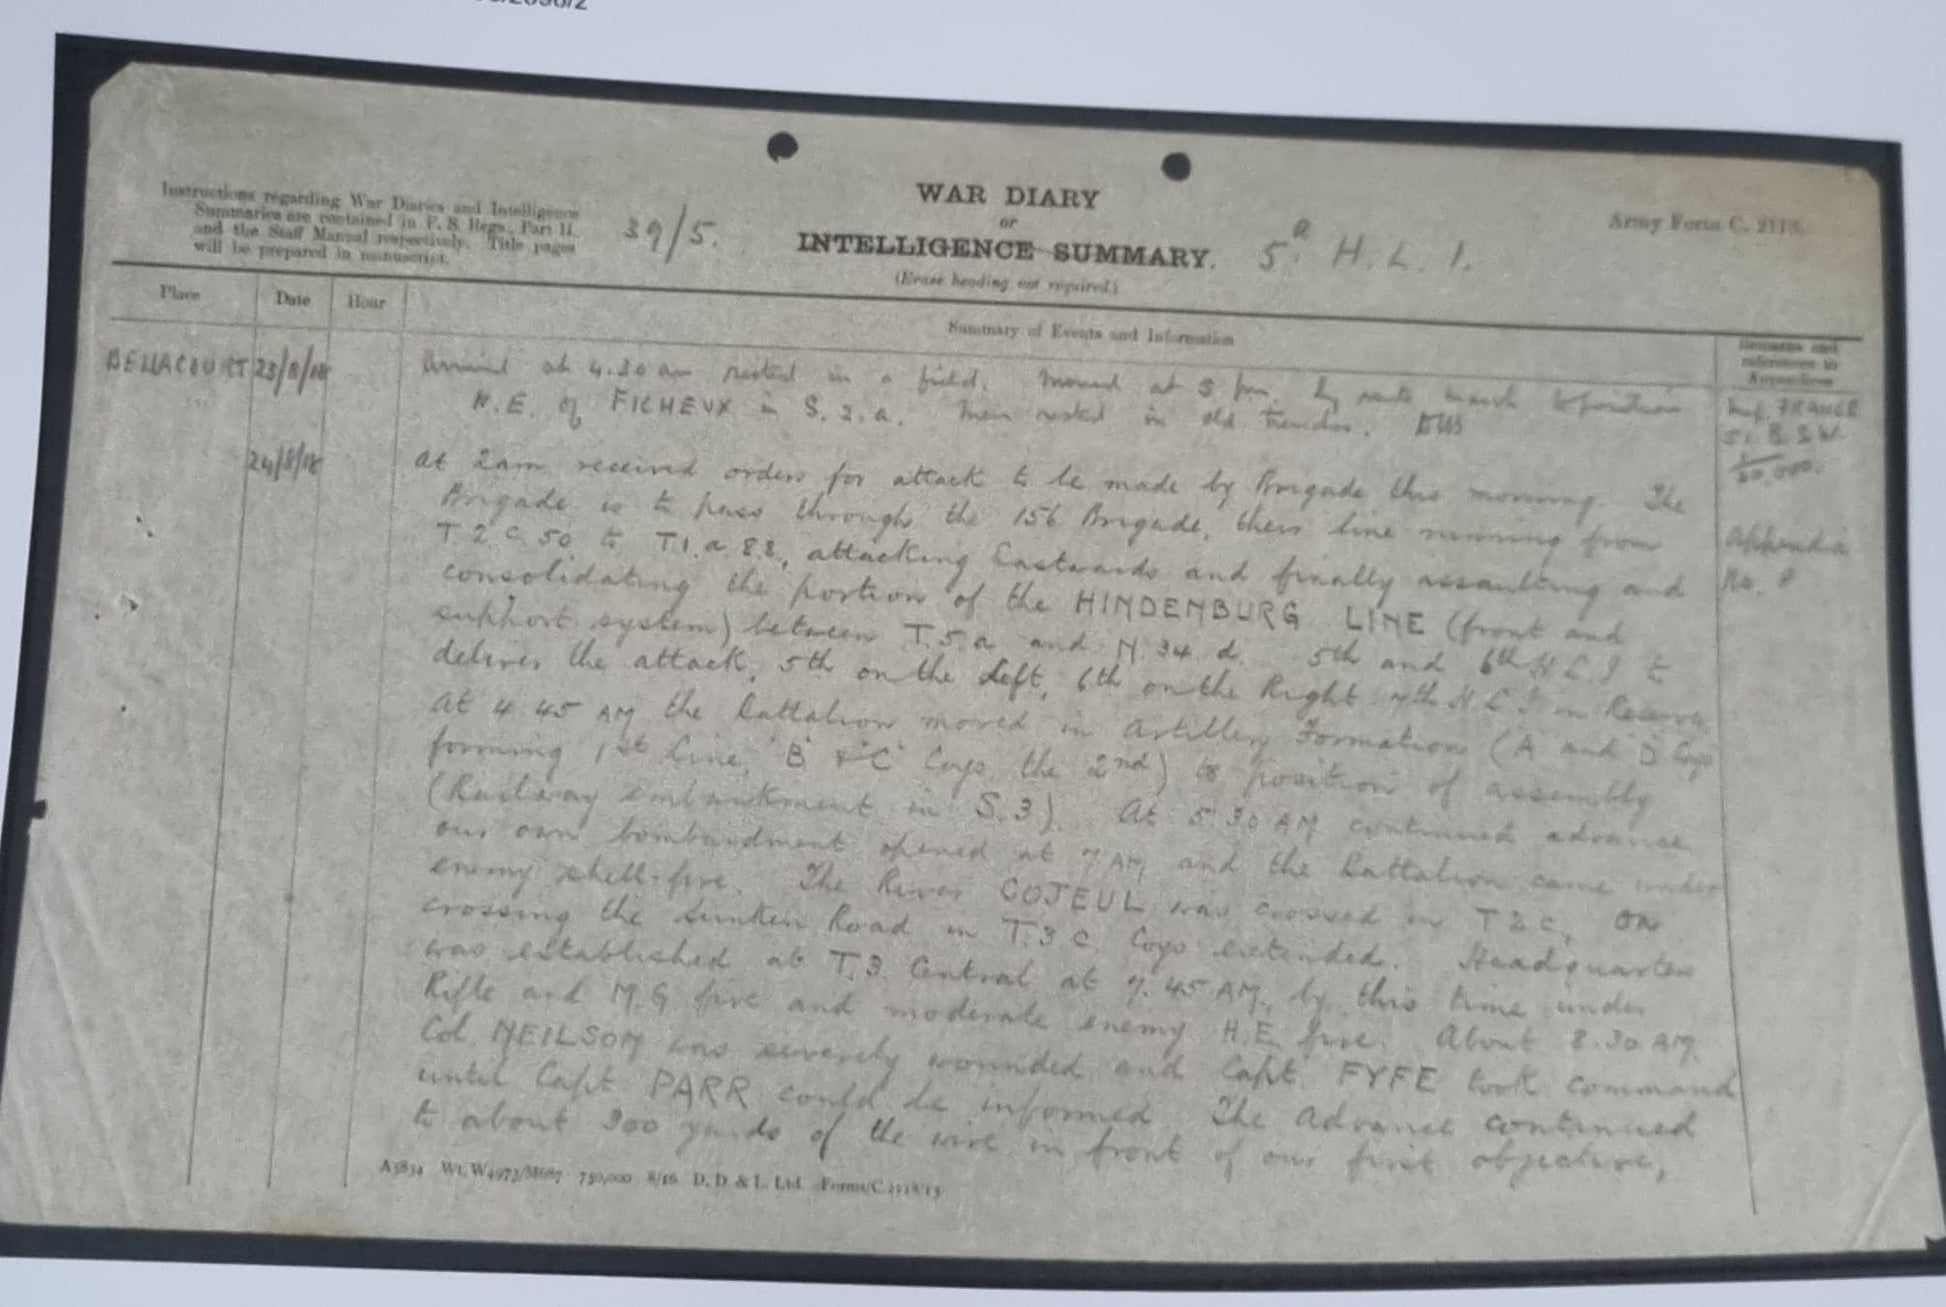 WAR DIARY
or
INTELLIGENCE SUMMARY.
(Erase heading not required.)
Instructions regarding War Diaries and Intelligence
Summaries are contained in F. S. Regs., Part II.
and the Staff Manual respectively. Title pages
will be prepared in manuscript.
39/5.
5. H. L. I.
Army Form C. 2118.
Place
Date
Hour
Summary of Events and Information
Remarks and
references to
Appendices
BELLACOURT 23/8/18 Arrived at 4.30 am rested in a field. Moved at 5 pm. by route march to position
N.E. of FICHEUX in S.2.a. Men rested in old trenches.
FRANCE
24/8/18 At 2am received orders for attack to be made by Brigade this morning. The
Brigade is to pass through the 156 Brigade, their line running from
T.2.c.50 to T1.a.88, attacking Eastwards and finally assaulting and
consolidating the portion of the HINDENBURG LINE (front and
support system) between T.5.a and N.34.d. 5th and 6th H.L.I to
deliver the attack, 5th on the Left, 6th on the Right 7th H.L.I in Reserve
At 4.45 AM the Battalion moved in Artillery Formation (A and D Coys
forming 1st Line, 'B' & 'C' Coys the 2nd) to position of assembly
(Railway embankment in S.3). At 5.30 AM continued advance
our own bombardment opened at 7 AM and the Battalion came under
enemy shell-fire. The River COJEUL was crossed in T2c, on
crossing the Sunken Road in T.3c. Coys extended. Headquarters
was established at T.3. Central at 7.45 AM, by this time under
Rifle and M.G fire and moderate enemy H.E. fire. About 8.30 AM.
Col. NEILSON was severely wounded and Capt. FYFE took command
until Capt PARR could be informed. The Advance continued
to about 300 yards of the wire in front of our first objective,
Appendix
No. 8
A5834 Wt.W4973/M687 750,000 8/16 D. D. & L. Ltd. Forms/C.2118/13